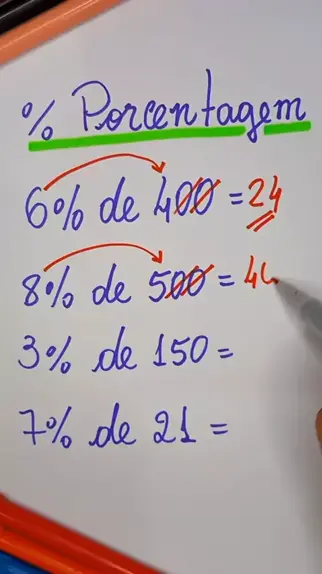 % Porcentagem
6% de 400 = 24
8% de 500 = 40
3% de 150 =
7% de 21 =